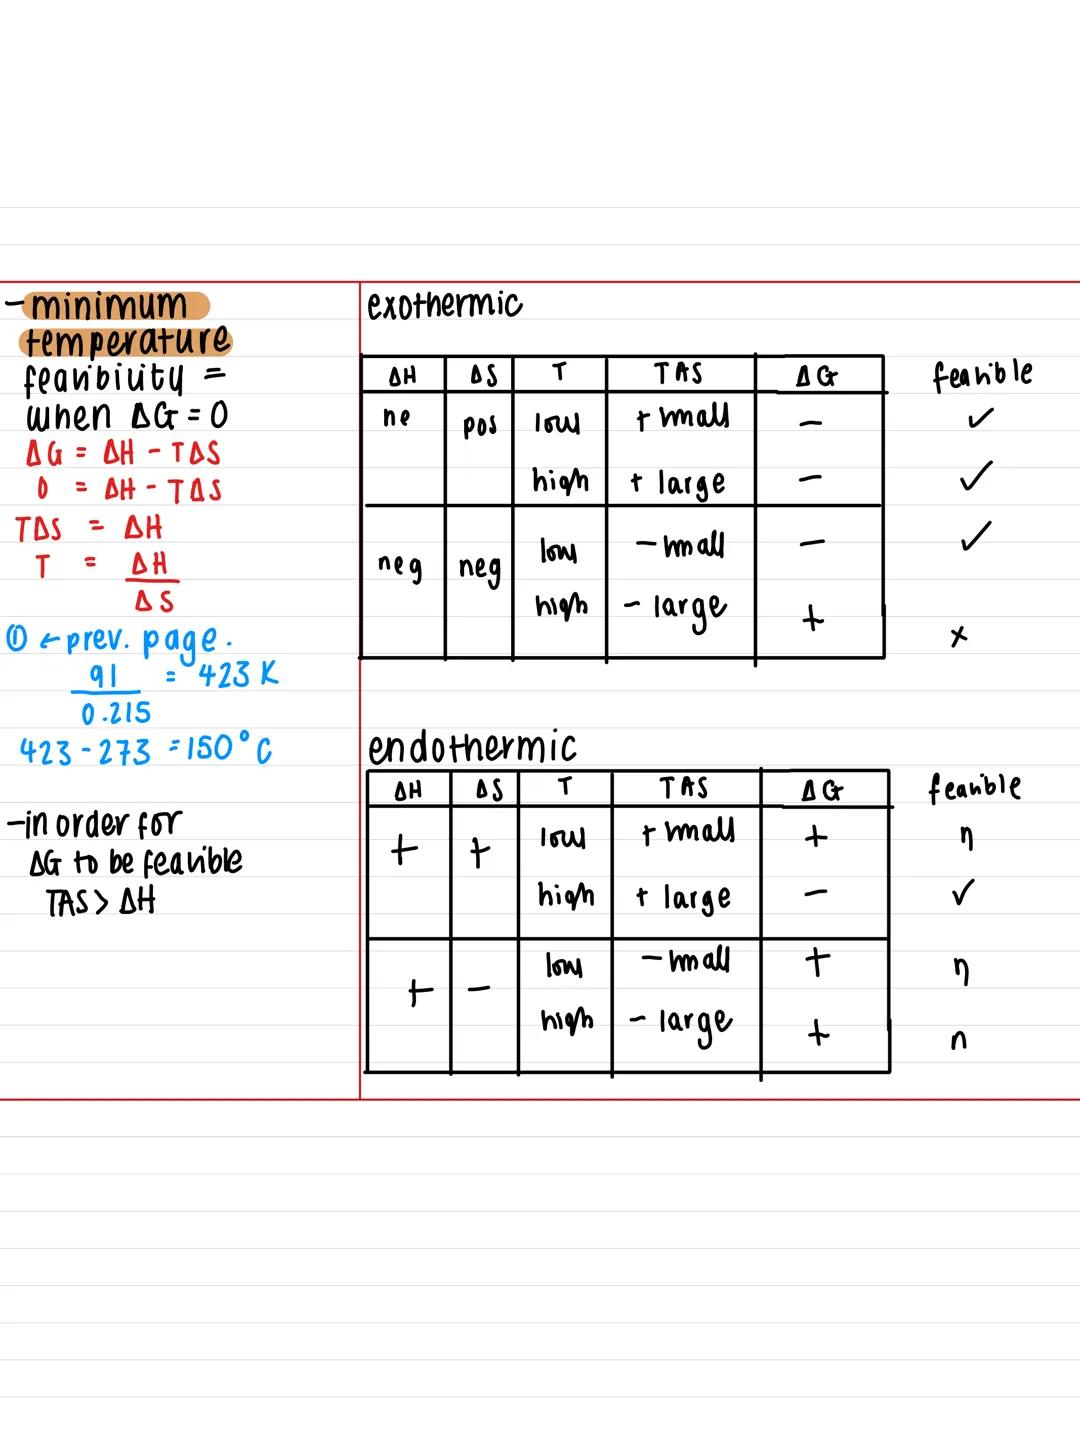 - minimum
temperature
feasibility =
when ΔG = 0
ΔG = ΔH - TΔS
0 = ΔH - TΔS
TΔS = ΔH
T = ΔH
ΔS
① ← prev. page.
91 = 423 K
0.215
423 - 273 = 150°C
- in order for
ΔG to be feasible
TΔS > ΔH
exothermic
ΔH ΔS T TΔS ΔG feasible
ne pos low + small - ✓
high + large - ✓
neg neg low - small - ✓
high - large + x
endothermic
ΔH ΔS T TΔS ΔG feasible
+ + low + small + n
high + large - ✓
+ - low - small + n
high - large + n